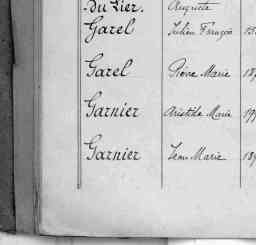 Du Vier. Auguste
Garel Julien François
Garel Pierre Marie
Garnier Aristide Marie
Garnier Jean Marie